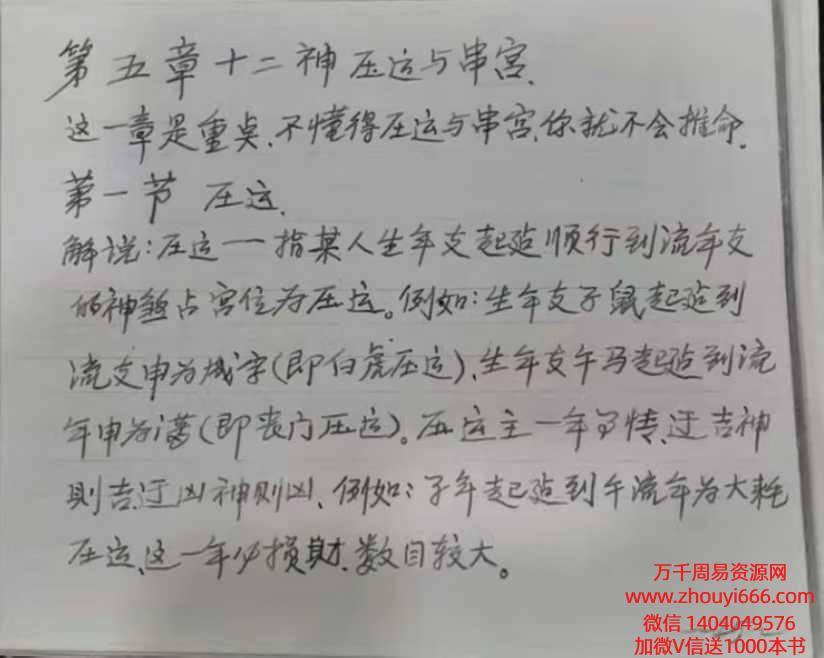 第五章十二神压运与串宫.
这一章是重点.不懂得压运与串宫.你就不会推命.
第一节 压运.
解说:压运——指某人生年支起建顺行到流年支
的神煞占宫位为压运。例如:生年支子鼠起建到
流支申为成字(即白虎压运)、生年支午马起建到流
年申为满(即丧门压运)。压运主一年事情、迂吉神
则吉迂凶神则凶、例如:子年起建到午流年为大耗
压运、这一年必损财.数目较大。
万千周易资源网
www.zhouyi666.com
微信 1404049576
加微V信送1000本书